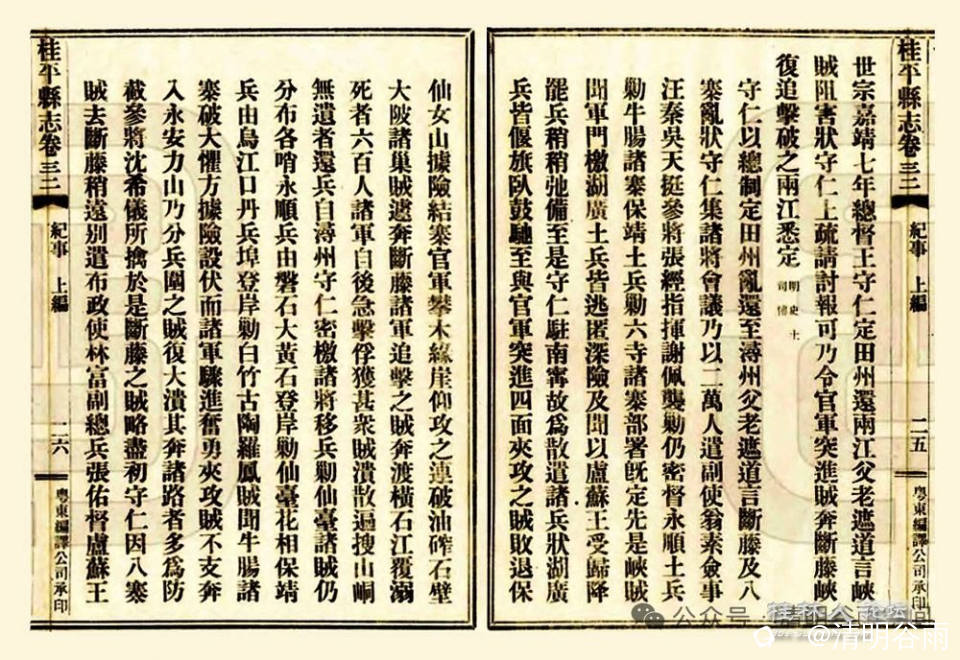 桂平縣志卷三二
紀事 上編
二五
粵東編譯公司承印
世宗嘉靖七年總督王守仁定田州還兩江父老遮道言峽
賊阻害狀守仁上疏請討報可乃令官軍突進賊奔斷藤峽
復追擊破之兩江悉定明史土司傳
守仁以總制定田州亂還至潯州父老遮道言斷藤及八
寨亂狀守仁集諸將會議乃以二萬人遣副使翁素僉事
汪秦吳天挺參將張經指揮謝佩襲勦仍密督永順土兵
勦牛腸諸寨保靖土兵勦六寺諸寨部署旣定先是峽賊
聞軍門檄湖廣土兵皆逃匿深險及聞以盧蘇王受歸降
罷兵稍稍弛備至是守仁駐南甯故爲散遣諸兵狀湖廣
兵皆偃旗臥鼓馳至與官軍突進四面夾攻之賊敗退保
仙女山據險結寨官軍攀木緣崖仰攻之連破油碎石壁
大陂諸巢賊遽奔斷藤諸軍追擊之賊奔渡橫石江覆溺
死者六百人諸軍自後急擊俘獲甚衆賊潰散遍搜山峒
無遺者還兵自潯州守仁密檄諸將移兵勦仙臺諸賊仍
分布各哨永順兵由磐石大黃石登岸勦仙臺花相保靖
兵由烏江口丹兵埠登岸勦白竹古陶羅鳳賊聞牛腸諸
寨破大懼方據險設伏而諸軍驟進奮勇夾攻賊不支奔
入永安力山乃分兵圍之賊復大潰其奔諸路者多爲防
截參將沈希儀所擒於是斷藤之賊略盡初守仁因八寨
賊去斷藤稍遠別遣布政使林富副總兵張佑督盧蘇王
桂平縣志卷三二
紀事 上編
二六
粵東編譯公司承印
公众号
桂林人论坛
@清明谷雨